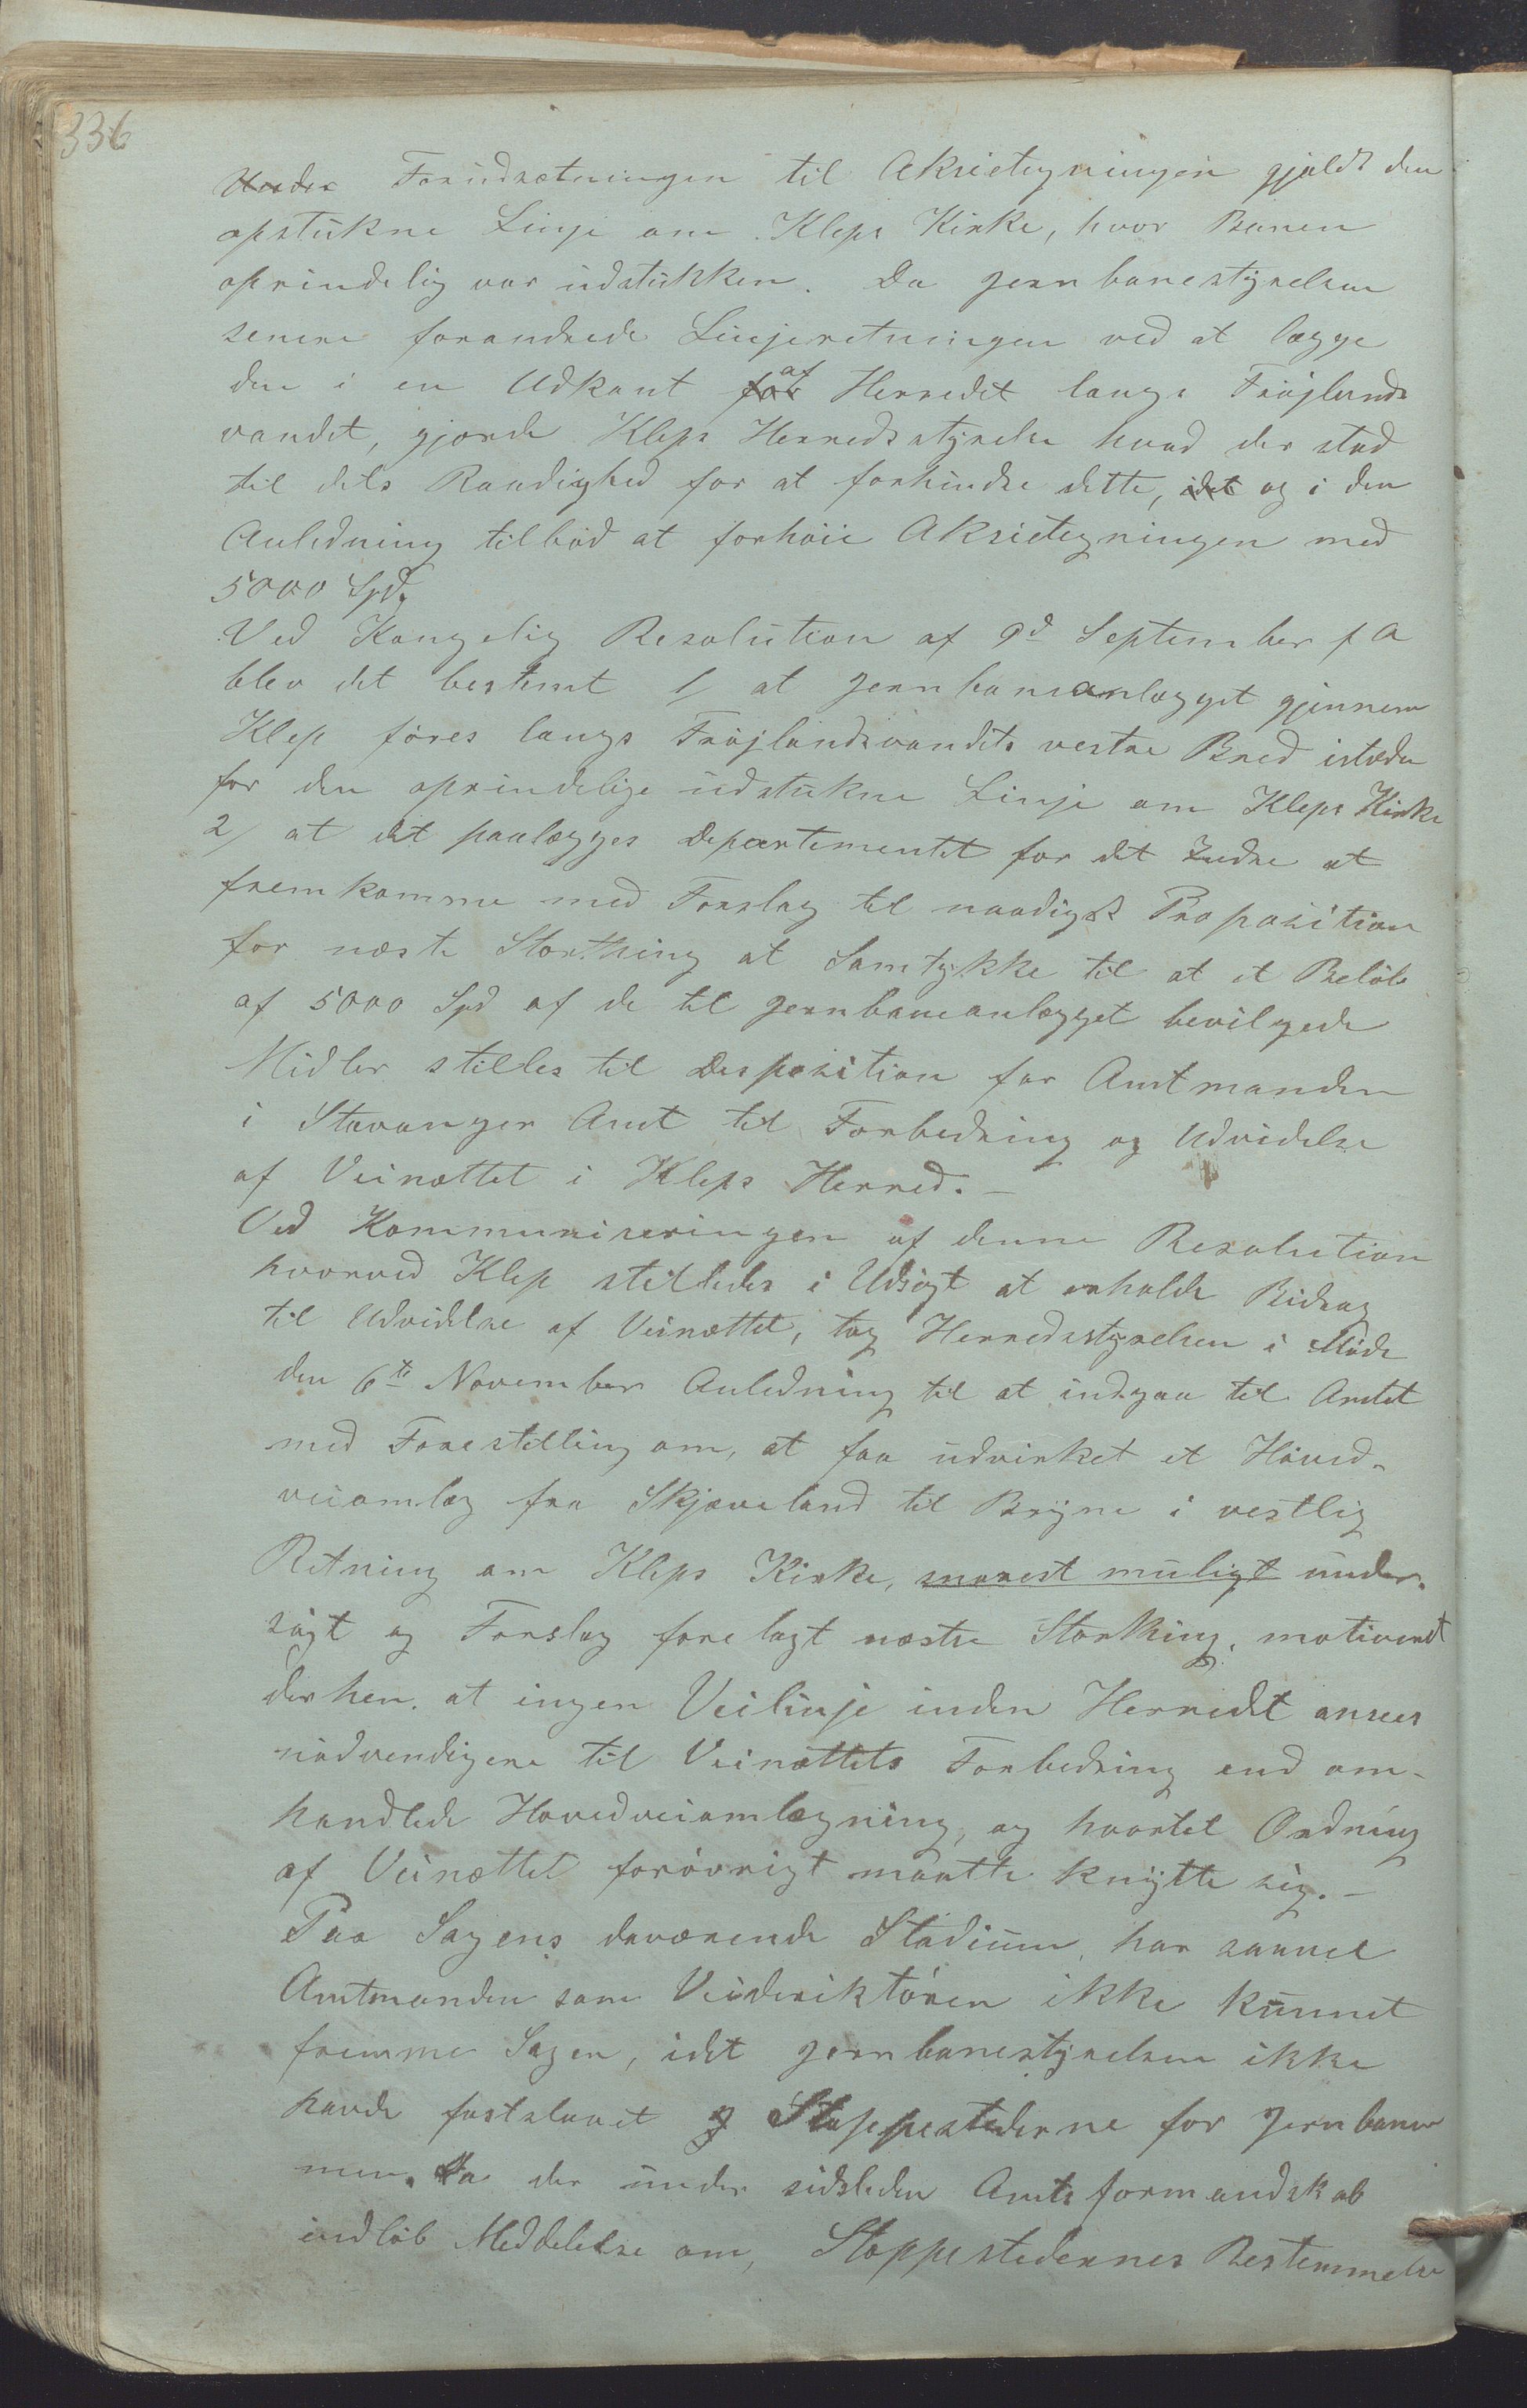 336
Under Forudsætningen til Aksietegningen gjaldt den
opstukne Linje om Kleps Kirke, hvor Banen
oprindelig var udstukken. Da Jernbanestyrelsen
senere forandrede Linjeretningen ved at lægge
den i en Udkant for af Herredet langs Frøjlands
vandet, gjorde Kleps Herredsstyrelse hvad der stod
til dets Raadighed for at forhindre dette, idet og i den
Anledning tilbød at forhøie Aksietegningen med
5000 Spd.
Ved Kongelig Resolution af 9d September f A
blev det bestemt 1/ at Jernbaneanlægget gjennem
Klep føres langs Frøjlandsvandets vestre Bred istæden
for den oprindelige udstukne Linje om Kleps Kirke
2/ at det paalægges Departementet for det Indre at
fremkomme med Forslag til naadigst Proposition
for næste Storthing at Samtykke til at et Beløb
af 5000 Spd af de til Jernbaneanlægget bevilgede
Midler stilles til Disposition for Amtmanden
i Stavanger Amt til Forbedring og Udvidelse
af Veinættet i Kleps Herred. –
Ved Kommuniseringen af denne Resolution
hvorved Klep stilledes i Udsigt at erholde Bidrag
til Udvidelse af Veinættet, tog Herredsstyrelsen i Møde
den 6te November Anledning til at indgaa til Amtet
med Forestilling om, at faa udvirket et Hoved-
veiomlæg fra Skjæveland til Bryne i vestlig
Retning om Kleps Kirke, snarest muligt under-
søgt og Forslag forelagt næste Storthing, motiveret
derhen, at ingen Veilinje inden Herredet ansees
nødvendigere til Veinættets Forbedring end om-
handlede Hovedveiomlægning, og hvortil Ordning
af Veinættet forøvrigt maatte knytte sig. –
Paa Sagens daværende Stadium, har saavel
Amtmanden som Veideriktøren ikke kunnet
fremme Sagen, idet Jernbanestyrelsen ikke
havde fastslaaet Stoppestederne for Jernbanen
men. Da der under sidstleden Amtsformandskab
indløb Meddelelse om, Stoppestedernes Bestemmelse